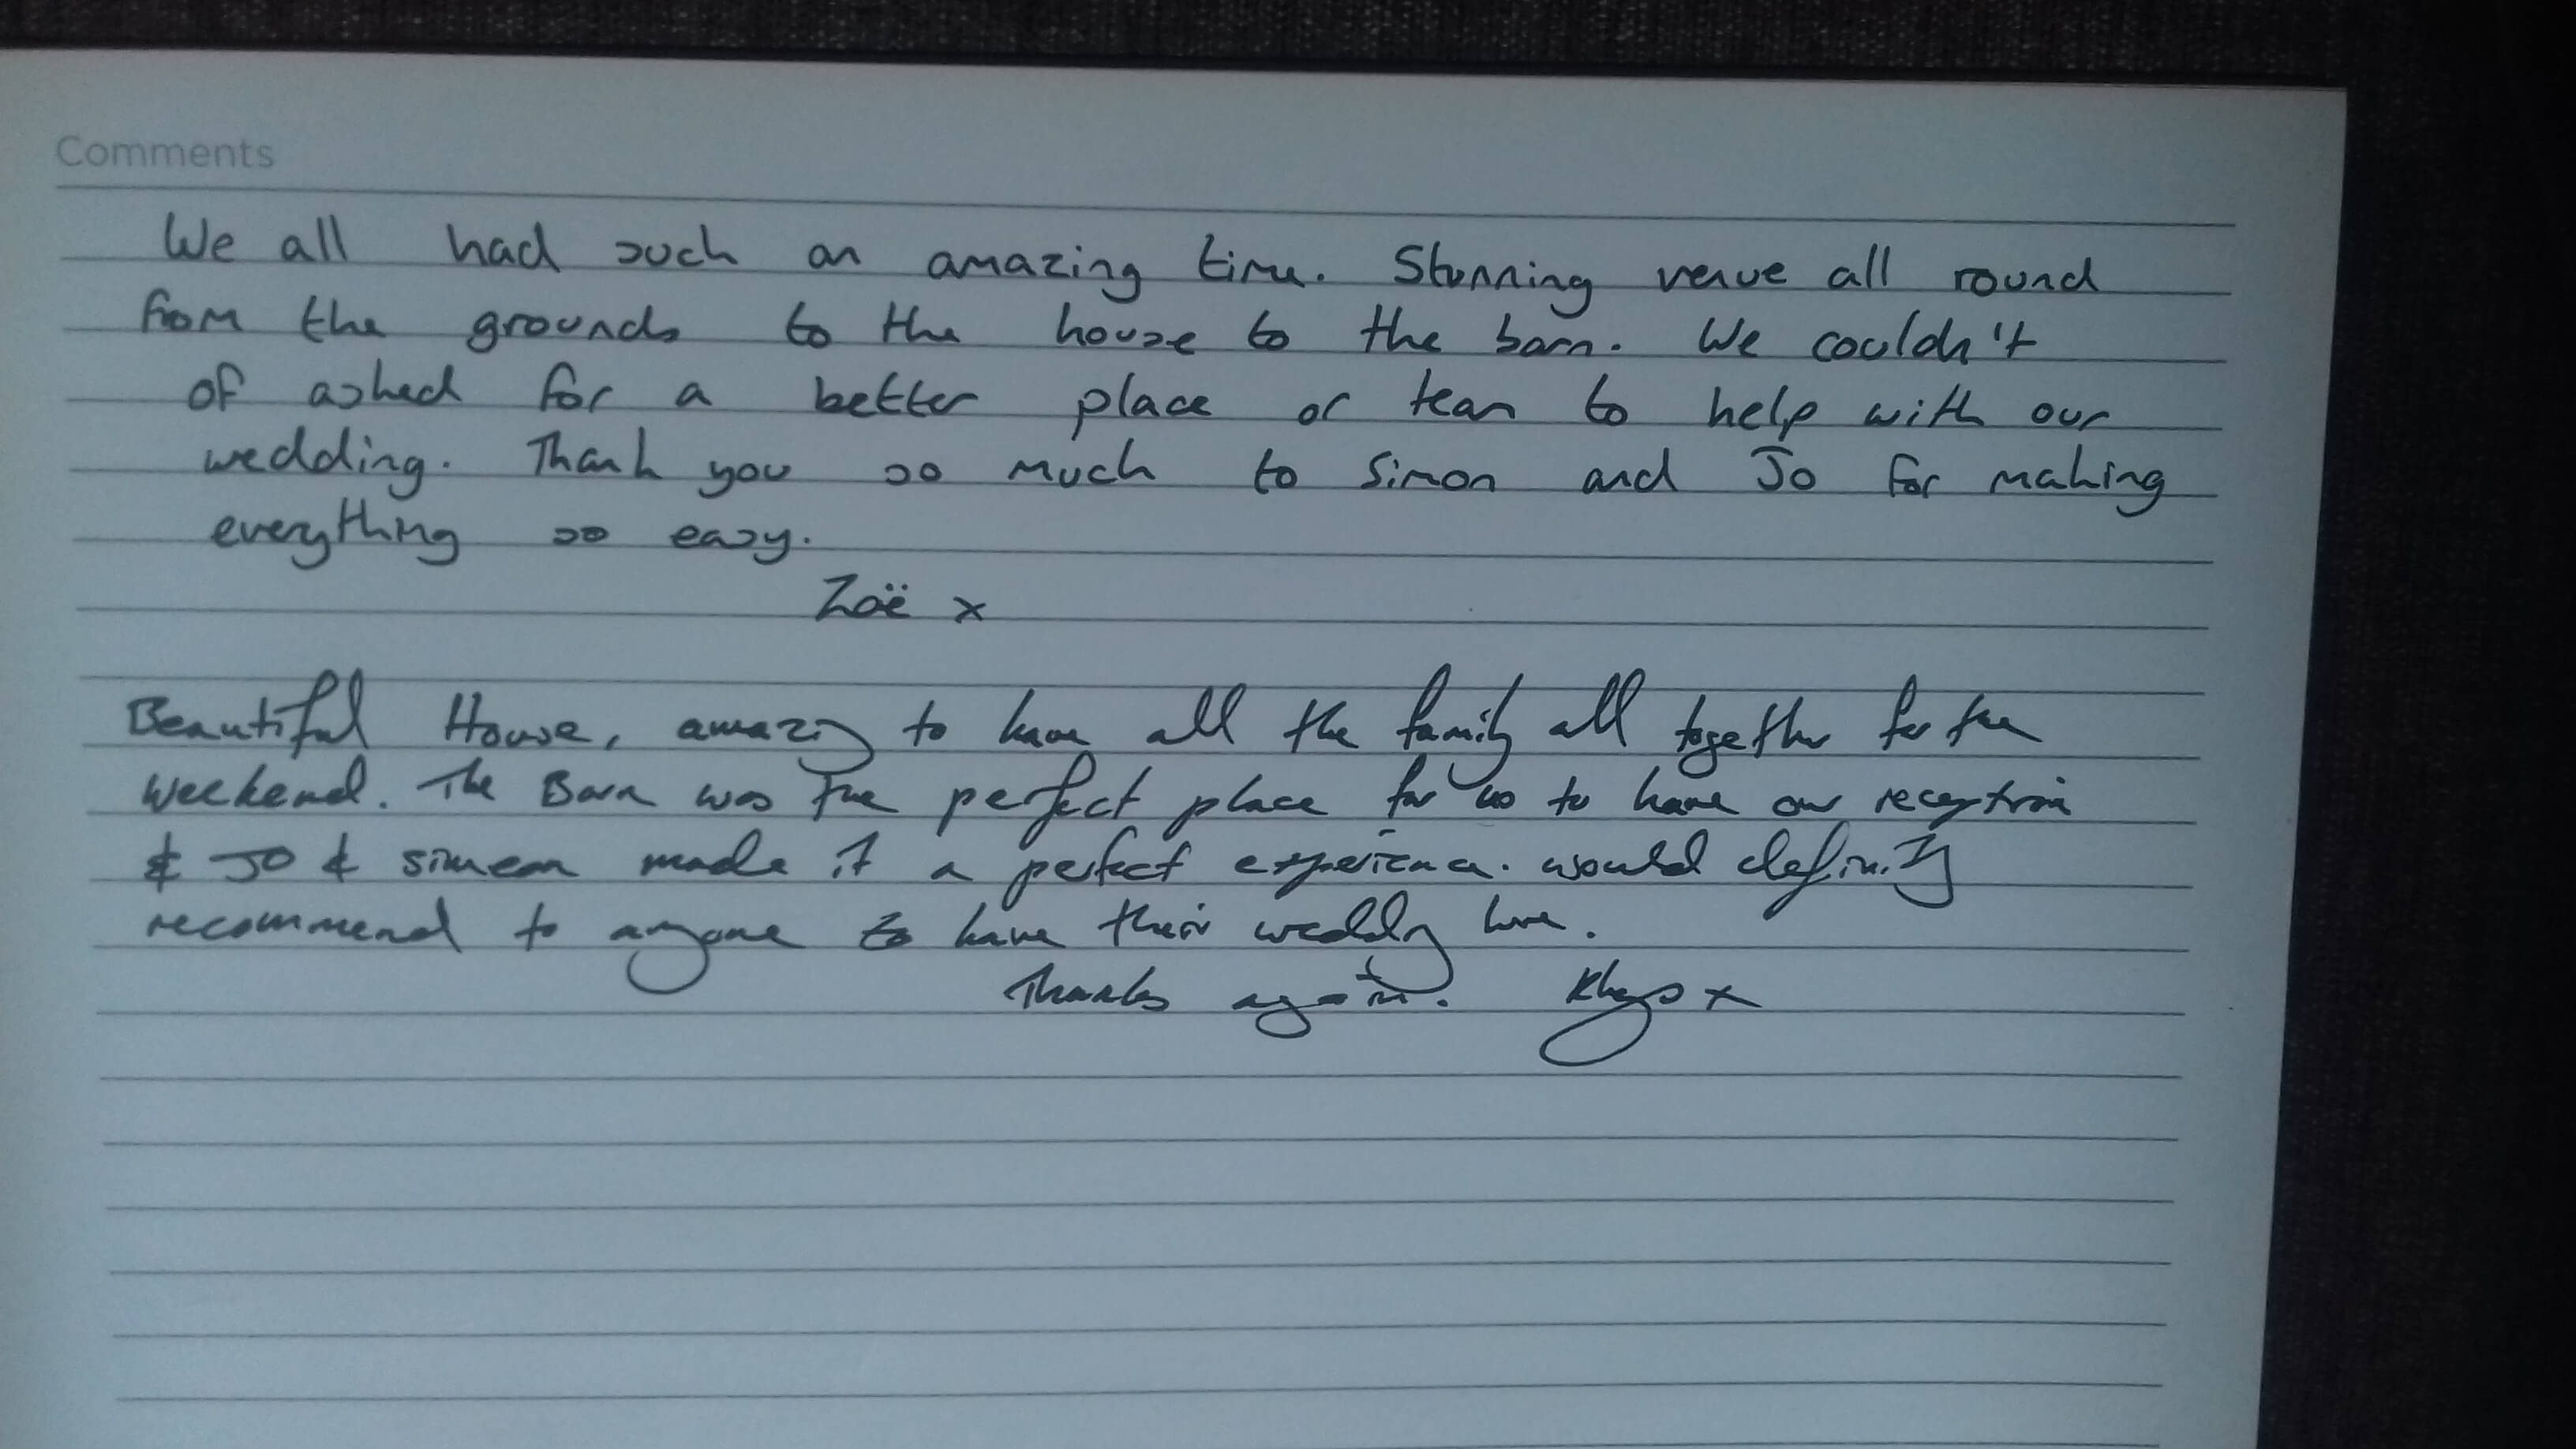 Comments
We all had such an amazing time. Stunning venue all round
from the grounds to the house to the barn. We couldn't
of asked for a better place or team to help with our
wedding. Thank you so much to Simon and Jo for making
everything so easy.
Zoë x
Beautiful House, amazing to have all the family all together for the
weekend. The Barn was the perfect place for us to have our reception
& JO & simeon made it a perfect experience. would definitly
recommend to anyone to have their wedding here.
Thanks again. Rhys x